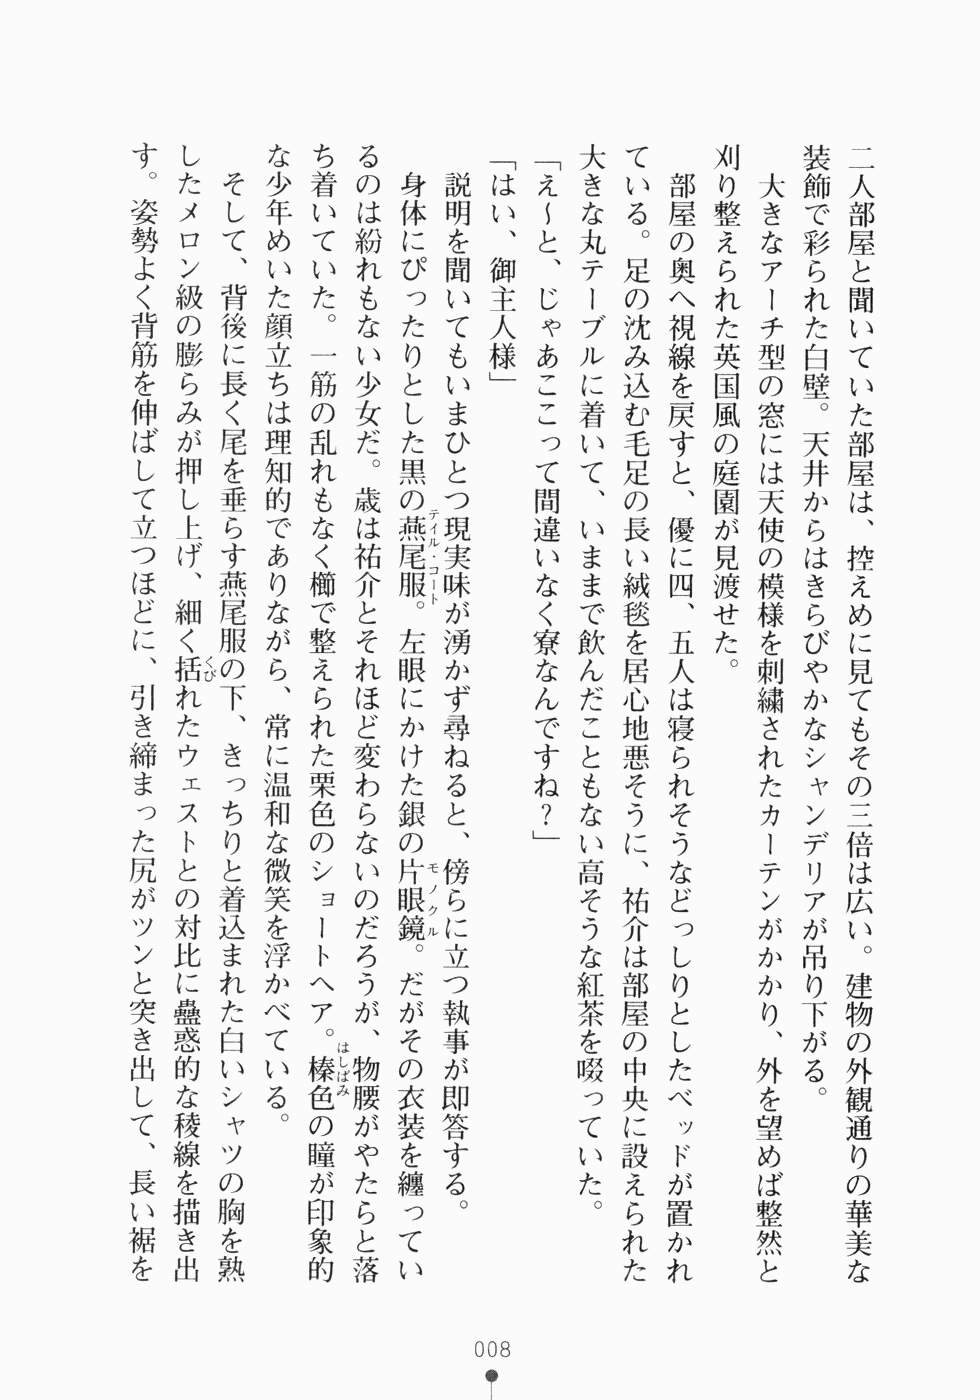 二人部屋と聞いていた部屋は、控えめに見てもその三倍は広い。建物の外観通りの華美な
装飾で彩られた白壁。天井からはきらびやかなシャンデリアが吊り下がる。
大きなアーチ型の窓には天使の模様を刺繍されたカーテンがかかり、外を望めば整然と
刈り整えられた英国風の庭園が見渡せた。
部屋の奥へ視線を戻すと、優に四、五人は寝られそうなどっしりとしたベッドが置かれ
ている。足の沈み込む毛足の長い絨毯を居心地悪そうに、祐介は部屋の中央に設えられた
大きな丸テーブルに着いて、いままで飲んだこともない高そうな紅茶を啜っていた。
「え〜と、じゃあここって間違いなく寮なんですね？」
「はい、御主人様」
説明を聞いてもいまひとつ現実味が湧かず尋ねると、傍らに立つ執事が即答する。
身体にぴったりとした黒の燕尾服。左眼にかけた銀の片眼鏡。だがその衣装を纏ってい
テイル・コート
モノクル
るのは紛れもない少女だ。歳は祐介とそれほど変わらないのだろうが、物腰がやたらと落
ち着いていた。一筋の乱れもなく櫛で整えられた栗色のショートヘア。榛色の瞳が印象的
はしばみ
な少年めいた顔立ちは理知的でありながら、常に温和な微笑を浮かべている。
そして、背後に長く尾を垂らす燕尾服の下、きっちりと着込まれた白いシャツの胸を熟
したメロン級の膨らみが押し上げ、細く括れたウェストとの対比に蠱惑的な稜線を描き出
くび
す。姿勢よく背筋を伸ばして立つほどに、引き締まった尻がツンと突き出して、長い裾を
008